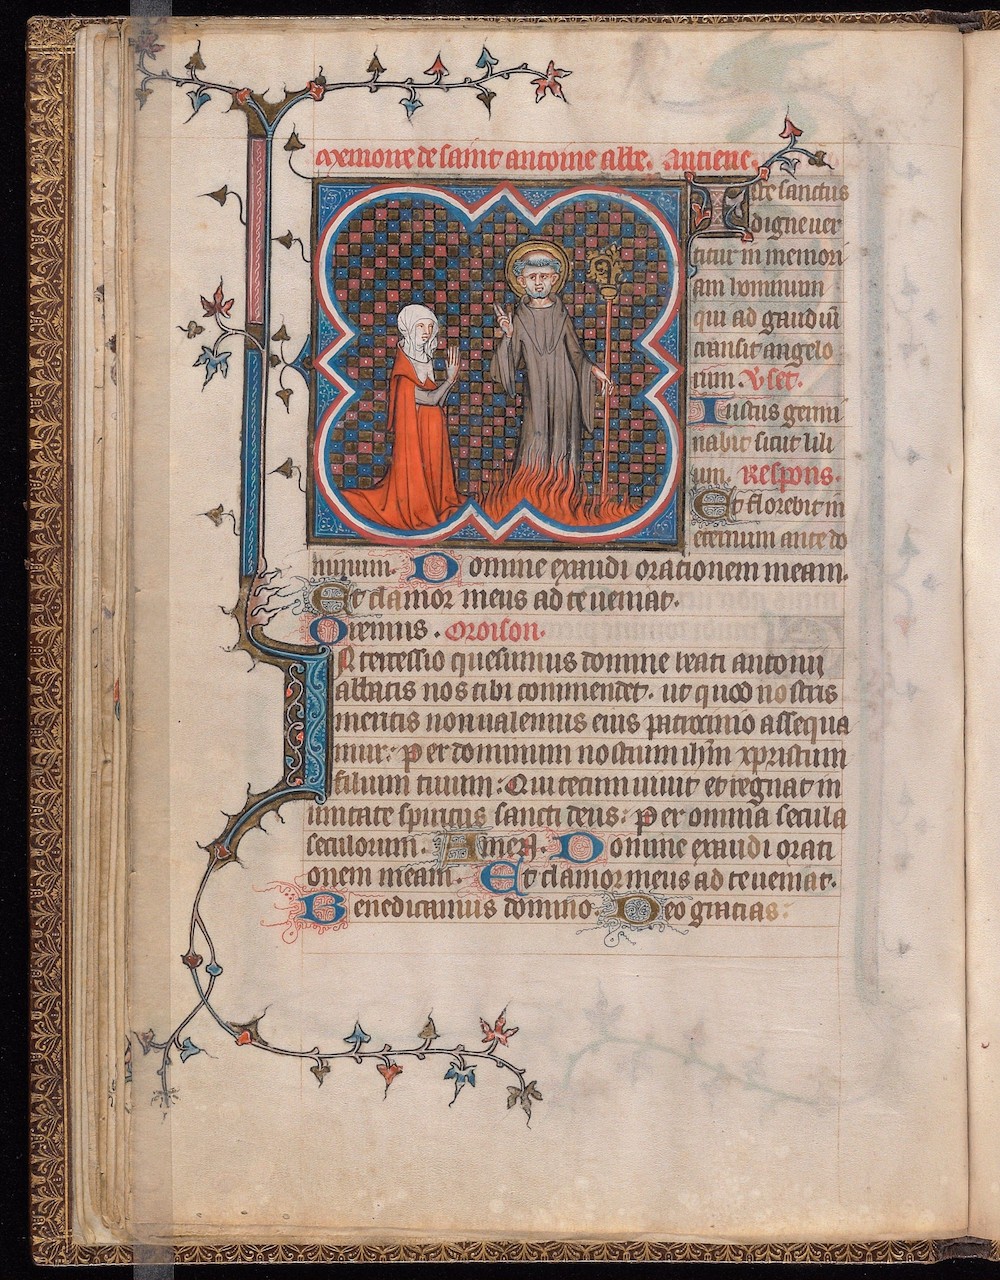 Memoire de saint antoine abbe. Antiene.
Iste sanctus
digne uer
titur in memori
am hominum
qui ad gaudiū
transit angelo
rum. Vset.
Iustus germi
nabit sicut lili
um. Respons.
Et florebit in
eternum ante do
minum. Domine exaudi orationem meam.
Et clamor meus ad te ueniat.
Oremus. Oroison.
Intercessio quesumus domine beati antonii
abbatis nos tibi commendet. ut quod nostris
meritis non ualemus eius patrocinio assequa
mur: per dominum nostrum ihm xpristum
filium tuum: Qui tecum uiuit et regnat in
unitate spiritus sancti deus: per omnia secula
seculorum. Amen. Domine exaudi orati
onem meam. Et clamor meus ad te ueniat.
Benedicamus domino. Deo gracias: